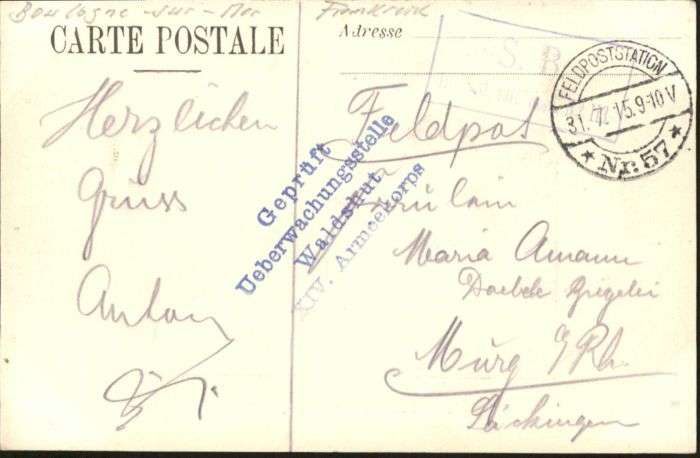 Boulogne-sur-Mer Frankreich
CARTE POSTALE
Adresse
Herzlichen
Gruss
Anton
Feldpost
Fräulein
Maria Amann
Murg a/Rh.
Säckingen
S. B.
FELDPOSTSTATION
31. 12. 15. 9-10 V
* Nr. 57 *
Geprüft
Ueberwachungsstelle
Waldshut
XIV. Armeekorps